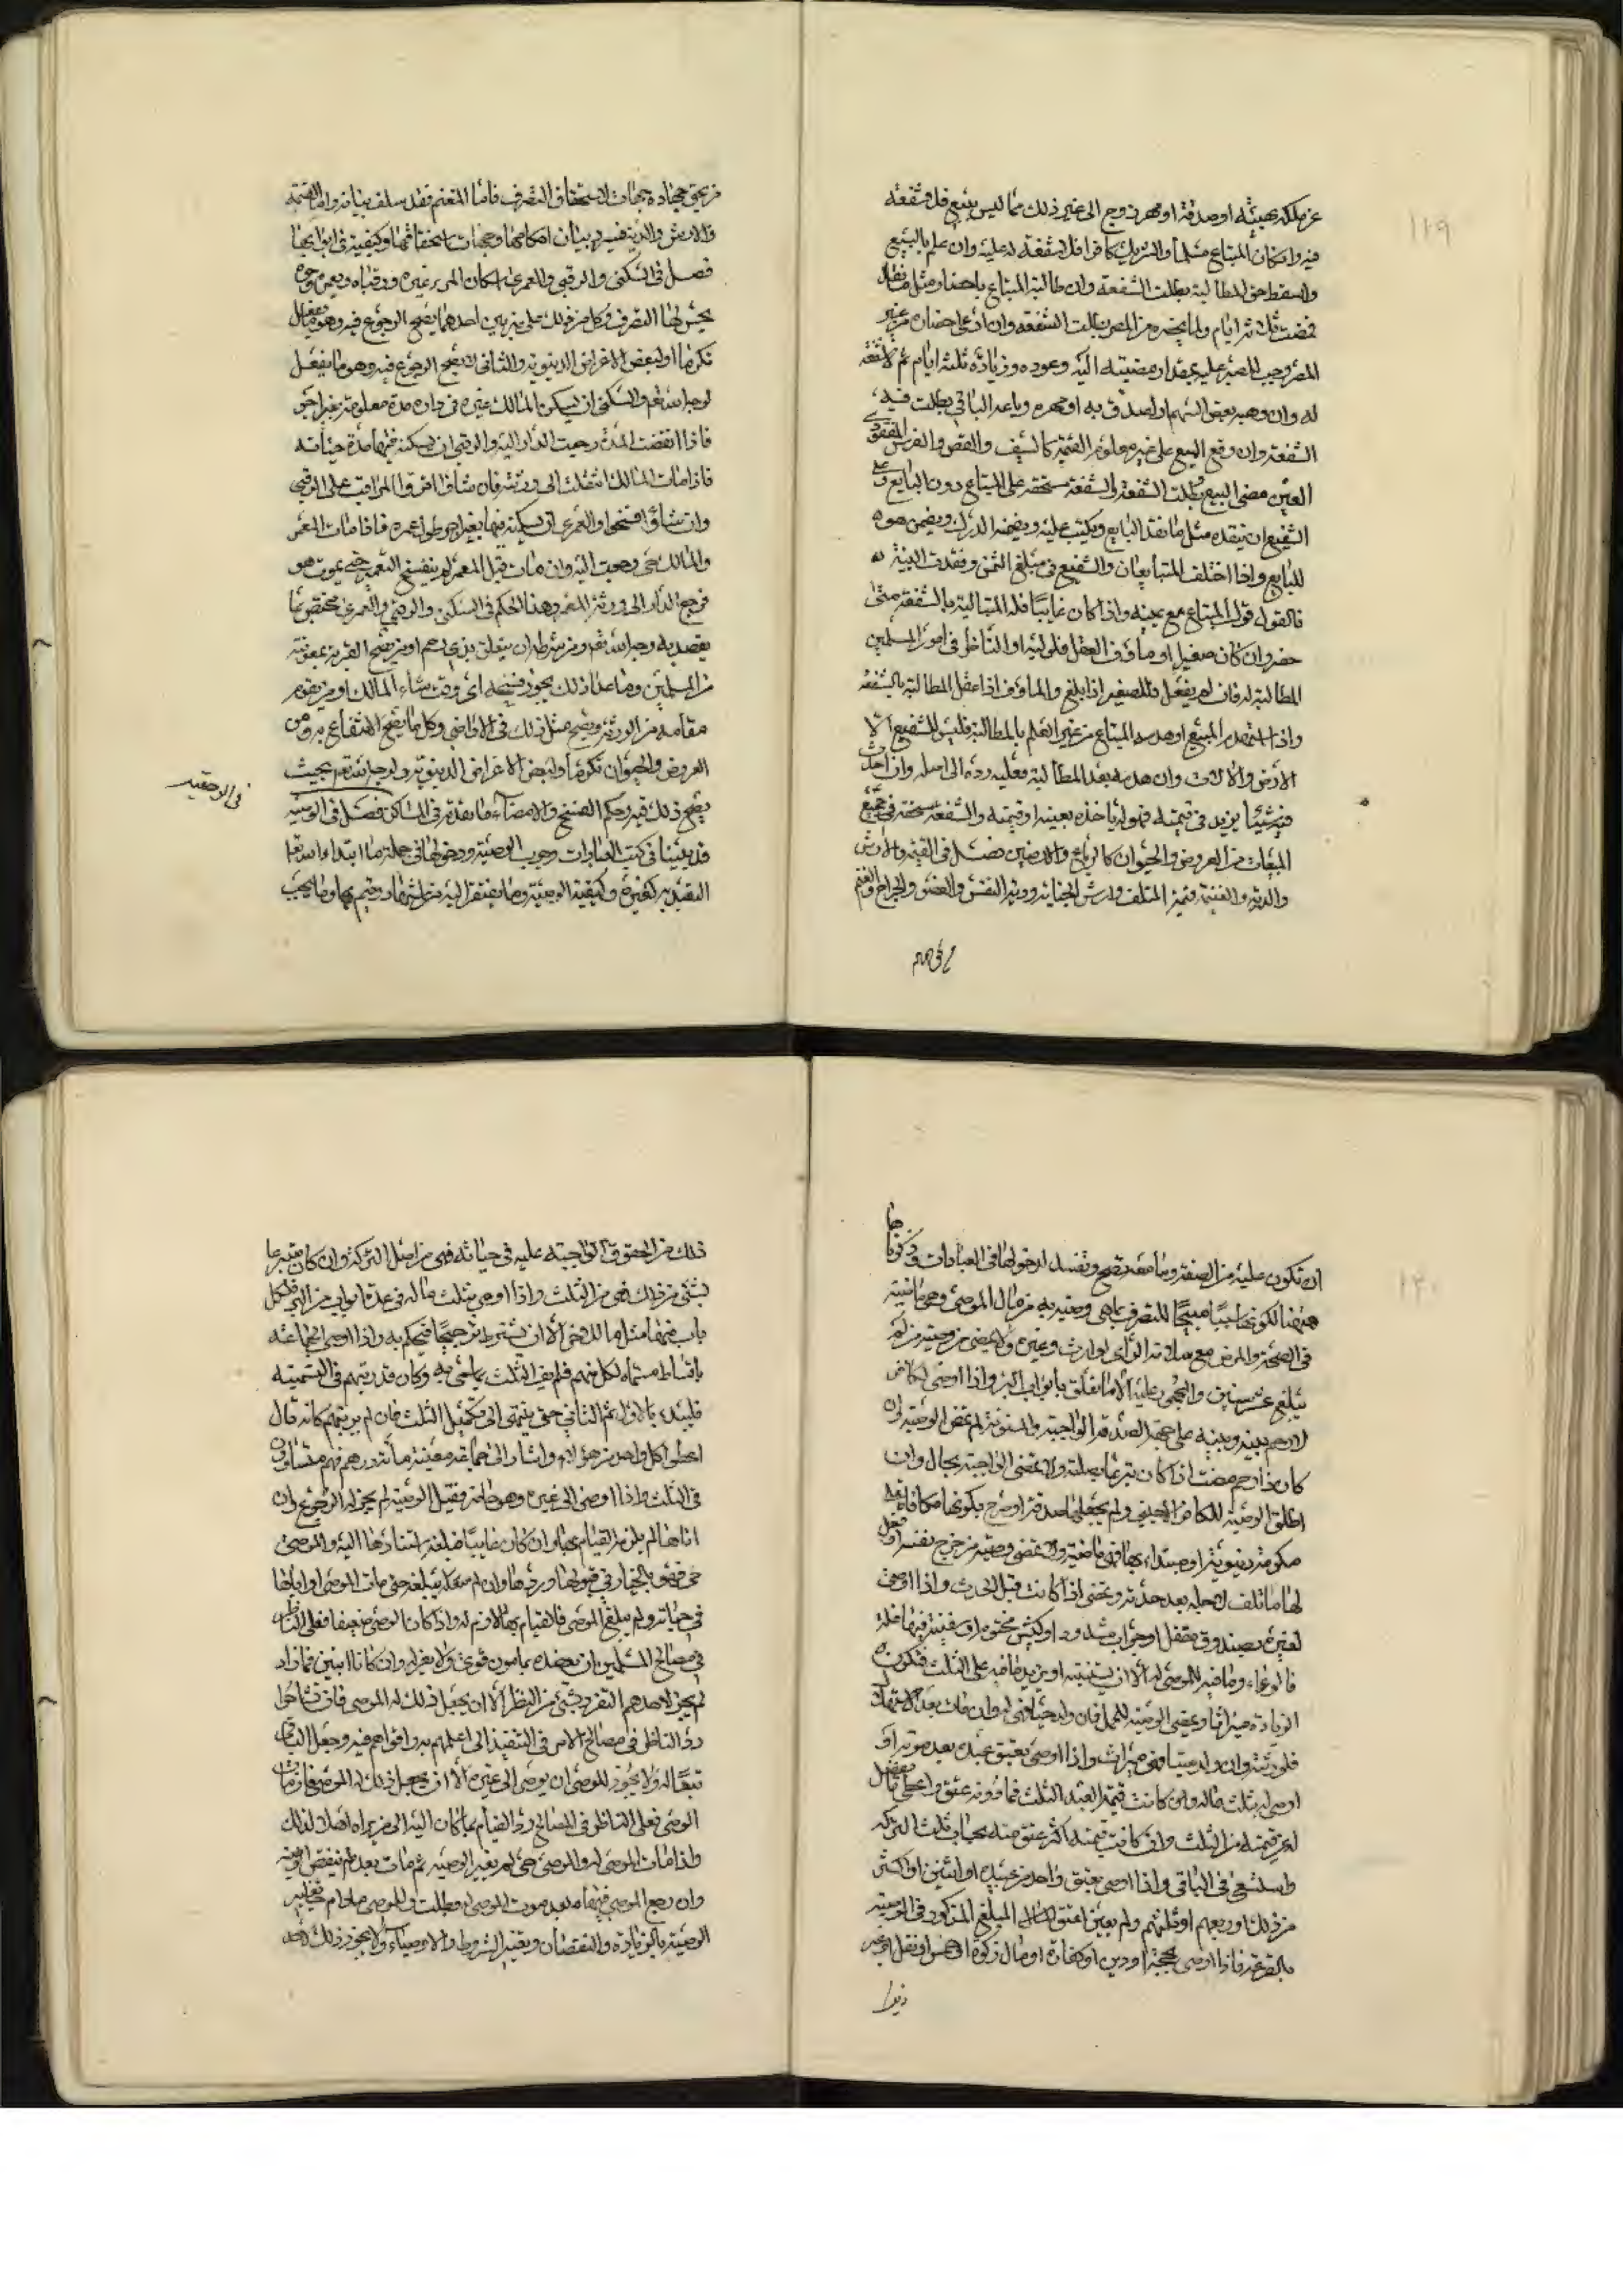 ١١٩
عن ملكه بهبة او صدقة او مهر زوج الى غير ذلك مما ليس ببيع فلا شفعة
فيه وان كان المبتاع مسلما والشريك كافرا فلا شفعة له عليه وان علم بالبيع
واسقط حق المطالبة بطلت الشفعة وان طالب المبتاع باحضار مثل ما نقد
فمضت ثلثة ايام ولم يحضره من المصر بطلت الشفعة وان ادعى احضاره من غير
المصر وجب الصبر عليه بمقدار مضيته اليه وعوده وزيادة ثلثة ايام ثم لا شفعة
له وان وهب بعض السهم او تصدق به او مهره وباعه الباقي بطلت فيه
الشفعة وان وقع البيع على غيره ملوم القيمة كالسيف والفص والفرس المفقودي
العين مضى البيع وبطلت الشفعة والشفعة مستحقة على المبتاع دون البايع وعلى
الشفيع ان ينقده مثل ما نقد البايع ويكتب عليه ويضمنه الدرك ويضمن هو
للبايع واذا اختلف المتبايعان والشفيع في مبلغ الثمن وفقدت البينة
فالقول قول المبتاع مع يمينه واذا كان غايبا فله المتالبة بالشفعة متى
حضر وان كان صغيرا او ماؤف العقل فلوليه او الناظر في امور المسلمين
المطالبة له فان لم يفعل فللصغير اذا بلغ والماؤف اذا عقل المطالبة بالشفعة
واذا استهدم المبيع او هدمه المبتاع من غير العلم بالمطالبة فليس للشفيع الا
الارض والالات وان هدمه بعد المطالبة فعليه رده الى اصله وان احدث
فيه شيئا يزيد في قيمته فهو له ياخذه بعينه او قيمته والشفعة مستحقة في جميع
المبيعات من العروض والحيوان كالرباع والارضين فصل في القيمة والارش
والدية والغنيمة قيمة المتلف وارش الجناية ودية النفس والعضو والجراح والغنم
من يحق جهاده جهات لاستحقاق التصرف فاما المغنم فقد سلف بيانه واما القيمة
والارش والدية فسيرد بيان احكامها وجهات استحقاقها وكيفيته في ابوابها
فصل في السكنى والرقبى والعمرى اسكان المرء غيره ورقباه ويعمره وجوه
يحسن لها التصرف وكل من ذلك على ضربين احدهما يصح الرجوع فيه وهو ما يفعل
تكرما او لبعض الاغراض الدينوية والثاني لا يصح الرجوع فيه وهو ما يفعل
لوجه الله تعم والسكنى ان يسكن المالك غيره في داره مدة معلومة بغير اجر
فاذا انقضت المدة رجعت الدار اليه والرقبى ان يسكنه فيها مدة حياته
فاذا مات المالك انتقلت الى ورثته فان شاؤا اقروا المراقب على الرقبى
وان شاؤا فسخوا والعمرى ان يسكنه فيها بغير اجر طول عمره فاذا مات المعمر
والمالك حي رجعت اليه وان مات قبل المعمر لم ينفسخ التعمير حتى يموت هو
فرجع الدار الى ورثة المعمر وهذا الحكم في السكنى والرقبى والعمرى مختص بما
يقصد به وجه الله تعم ومن شرطه ان يتعلق بذي رحم او من يصح القربة بمعونته
من المسلمين وما عدا ذلك يجوز فسخه اى وقت شاء المالك او من يقوم
مقامه من الورثة ويصح مثل ذلك في الاراضي وكلما يصح الانتفاع به من
العروض والحيوان تكرما ولبعض الاغراض الدينوية ولوجه الله تعم بحيث
يصح ذلك فيه وحكم الفسخ والامضاء ما تقدم في المساكن فصل في الوصية
قد بينا في كتب العبادات وجوب الوصية ودخولها في جملة ما ابتداء الله تعالى
التعبد به كغيره وكيفية الوصية وما يفتقر اليه من اشهاد وقيم بها وما يجب
١٢٠
ان تكون عليه من الصفة وما معه تصح وتفسد لدخولها في العبادات وذكرناها
هيهنا لكونها سببا مبيحا للتصرف بما هي وصية به من مال الموصى وهي ماضية
في الصحة والمرض مع سلامة الراى لوارث وغيره ولا يمضى من وصية من لم
يبلغ عشر سنين والمحجور عليه الا ما تعلق بابواب البر واذا اوصى لكافر
لا رحم بينه وبينه على جهة الصدقة الواجبة والمسنونة لم تمض الوصية وان
كان ذا رحم مضت اذا كان تبرعا بصلته ولا تمضى الواجبة بحال وان
اطلق الوصية للكافر الاجنبي ولم يجعلها صدقة او صرح بكونها مكافاة على
مكرمة دينوية او مبتداء بها فهي ماضية ولا تمضى وصية من جرح نفسه او فعل
لها ما تلف لاجله بعد حدثه وتمضى اذا كانت قبل الحدث واذا اوصى
لغيره بصندوق مقفل او جراب مشدود او كيس مختوم او سفينة فيها غلة
فالوعاء وما فيه للموصى له الا ان يستثنيه او يزيد ما فيه على الثلث فتكون
الزيادة ميراثا وتمضى الوصية للحمل فان ولد حيا فهي له وان مات بعد الاستهلال
فلورثته وان ولد ميتا فهي ميراث واذا اوصى بعتق عبده بعد موته او
اوصى له بثلث ماله وان كانت قيمة العبد الثلث فما دونه عتق واعطى ما فضل
له عن قيمته من الثلث وان كانت قيمته اكثر عتق منه بحساب ثلث التركة
واستسعى في الباقي واذا اوصى بعتق واحد من عبيده او اثنين او اكثر
من ذلك او ربعهم او ثلثهم ولم يعين اعتق المبلغ المذكور في الوصية
بالقرعة فاذا اوصى بحجة او دين او كفارة او مال زكوة او خمس او نقل او غير
ذلك من الحقوق الواجبة عليه في حياته فهي من اصل التركة وان كان متبرعا
بشئ من ذلك فهي من الثلث واذا اوصى بثلث ماله في عدة ابواب من البر فلكل
باب منها مثل ما للاخر الا ان يشترط ترجيحا فيحكم به واذا اوصى لجماعة
باقساط مسماه لكل منهم فلم يف الثلث بما سمى به وكان قد رتبهم في التسمية
فليبدء بالاول ثم الثاني حتى ينتهى الى تكميل الثلث فان لم يرتبهم كانه قال
اعطى كل واحد من هؤلاء واشار الى جماعة معينة مائة درهم فهم متساوون
في الثلث واذا اوصى الى غيره وهو حاضر فقبل الوصية لم يجز له الرجوع وان
اباها لم يلزمه القيام بها وان كان غايبا فبلغه استنادها اليه والموصى
حي فهو بالخيار في قبولها وردها وان لم يبلغه حتى مات الموصى او اباها
في حياته ولم يبلغ الموصى فالقيام بها لازم له واذا كان الوصى ضعيفا فعلى الناظر
في مصالح المسلمين ان يعضده بامون قوى ولا يعزله وان كانا اثنين فما زاد
لم يجز لاحدهم التفرد بشئ من النظر الا ان يجعل ذلك له الموصى فان تشاحوا
رد الناظر في مصالح الناس في التنفيذ الى اعلمهم به واقواهم فيه وجعل الباقي
تبعا له ولا يجوز للموصى ان يوصى الى غيره الا ان يجعل ذلك له الموصى فان مات
الوصى فعلى الناظر في المصالح رد القيام بما كان اليه الى من يراه اهلا لذلك
واذا مات الموصى له والموصى حي لم يغير الوصية ثم مات بعده لم تنقض الوصية
وان رجع الموصى فيها بعد موت الموصى له بطلت وللموصى مادام حيا تغيير
الوصية بالزيادة والنقصان وتغيير الشروط والاوصياء ولا يجوز ذلك لاحد